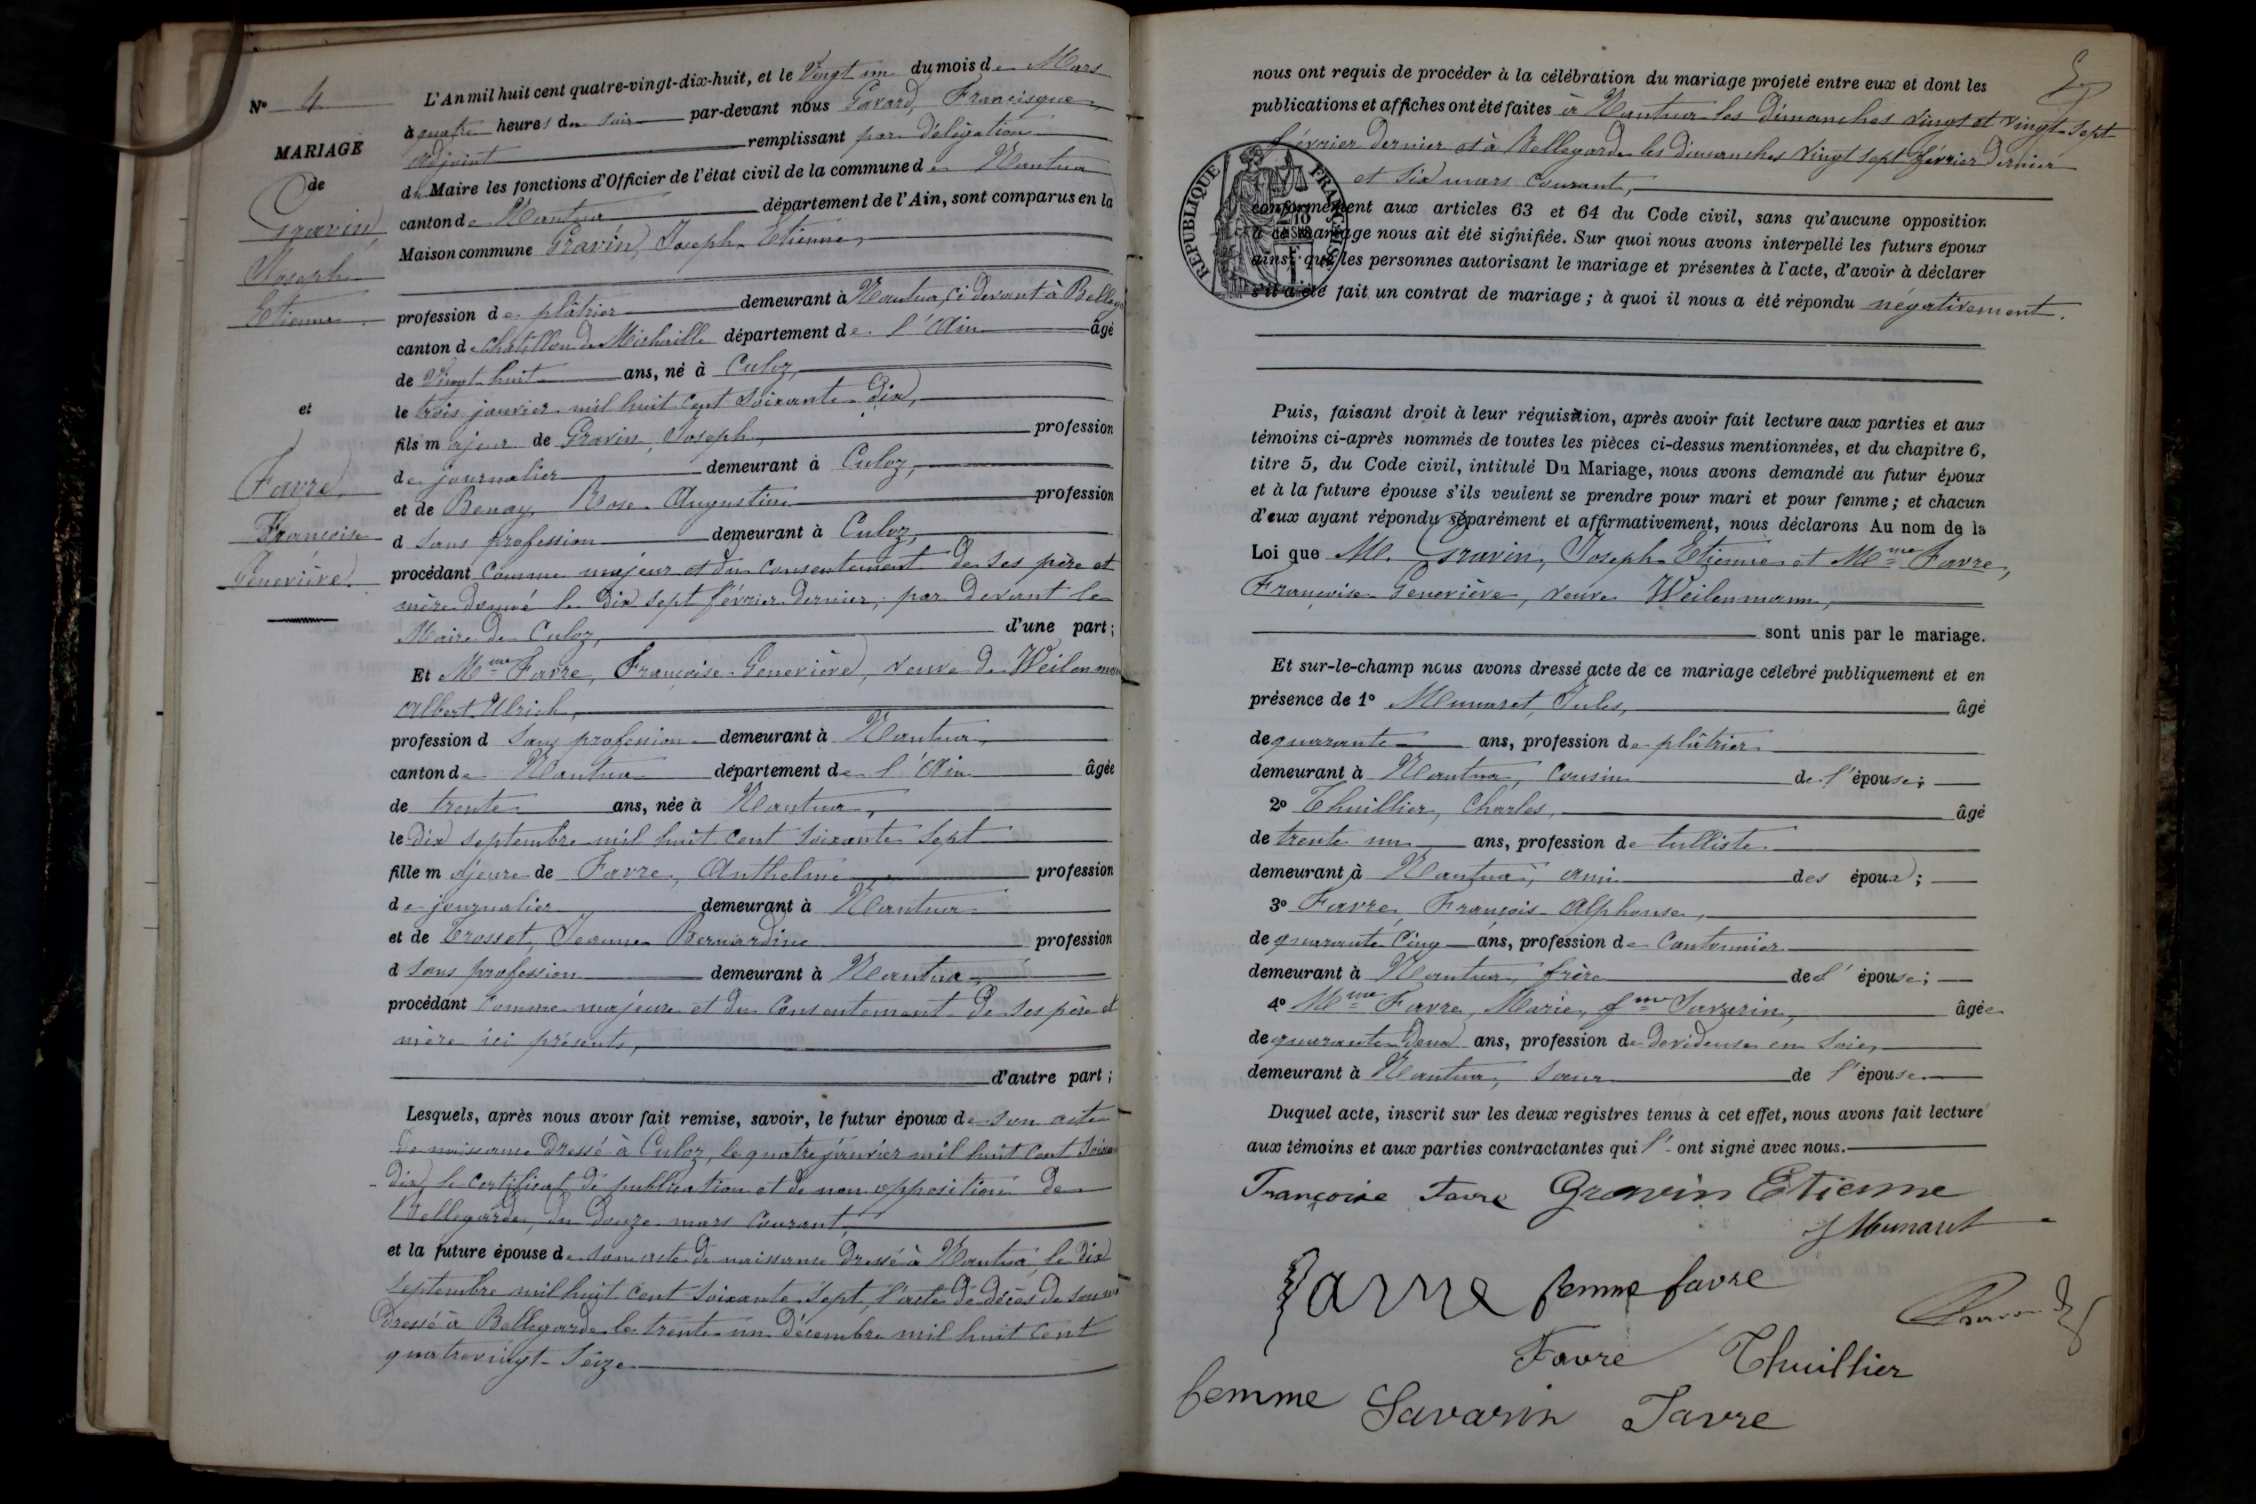 N° 4
MARIAGE
de
Gravin
Joseph
Etienne
et
Favre
Françoise
Geneviève
L'An mil huit cent quatre-vingt-dix-huit, et le Vingt un du mois de Mars
à quatre heures du soir par-devant nous Gavard, Francisque,
adjoint remplissant par délégation
du Maire les fonctions d'Officier de l'état civil de la commune de Nantua
canton de Nantua département de l'Ain, sont comparus en la
Maison commune Gravin, Joseph Etienne,
profession de plâtrier demeurant à Nantua, ci devant à Belleg
canton de Châtillon de Michaille département de l'Ain âgé
de Vingt huit ans, né à Culoz,
le trois janvier mil huit cent soixante dix,
fils majeur de Gravin, Joseph, profession
de journalier demeurant à Culoz,
et de Benay, Rose Augustine profession
d sans profession demeurant à Culoz,
procédant comme majeur et du consentement de ses père et
mère donné le dix sept février dernier, par devant le
Maire de Culoz, d'une part;
Et Mme Favre, Françoise Geneviève, veuve de Weilenman
Albert Ulrich,
profession d sans profession demeurant à Nantua,
canton de Nantua département de l'Ain âgée
de trente ans, née à Nantua,
le dix septembre mil huit cent soixante sept
fille majeure de Favre, Anthelme profession
de journalier demeurant à Nantua
et de Trosset, Jeanne Bernardine profession
d sans profession demeurant à Nantua,
procédant comme majeure et du consentement de ses père et
mère ici présents,
d'autre part;
Lesquels, après nous avoir fait remise, savoir, le futur époux de son acte
de naissance dressé à Culoz, le quatre janvier mil huit cent soixan
-dix, le certificat de publication et de non opposition de
Bellegarde, du douze mars courant,
et la future épouse de son acte de naissance dressé à Nantua, le dix
septembre mil huit cent soixante sept, l'acte de décès de son
dressé à Bellegarde le trente un décembre mil huit cent
quatrevingt-seize
nous ont requis de procéder à la célébration du mariage projeté entre eux et dont les
publications et affiches ont été faites à Nantua les dimanches vingt et vingt-sept
février dernier et à Bellegarde les dimanches vingt sept février dernier
et six mars courant,
RÉPUBLIQUE FRANÇAISE
conformément aux articles 63 et 64 du Code civil, sans qu'aucune opposition
à ce mariage nous ait été signifiée. Sur quoi nous avons interpellé les futurs époux
ainsi que les personnes autorisant le mariage et présentes à l'acte, d'avoir à déclarer
s'il a été fait un contrat de mariage; à quoi il nous a été répondu négativement.
Puis, faisant droit à leur réquisition, après avoir fait lecture aux parties et aux
témoins ci-après nommés de toutes les pièces ci-dessus mentionnées, et du chapitre 6,
titre 5, du Code civil, intitulé Du Mariage, nous avons demandé au futur époux
et à la future épouse s'ils veulent se prendre pour mari et pour femme; et chacun
d'eux ayant répondu séparément et affirmativement, nous déclarons Au nom de la
Loi que M. Gravin, Joseph Etienne et Mme Favre,
Françoise Geneviève, veuve Weilenmann,
sont unis par le mariage.
Et sur-le-champ nous avons dressé acte de ce mariage célébré publiquement et en
présence de 1° Munaret, Jules, âgé
de quarante ans, profession de plâtrier
demeurant à Nantua, cousin de l'épouse;
2° Thuillier, Charles, âgé
de trente un ans, profession de tulliste
demeurant à Nantua, ami des époux;
3° Favre, François Alphonse,
de quarante cinq ans, profession de Cantonnier
demeurant à Nantua, frère de l'épouse;
4° Mme Favre, Marie, fme Savarin, âgée
de quarante deux ans, profession de devideuse en soie,
demeurant à Nantua, soeur de l'épouse
Duquel acte, inscrit sur les deux registres tenus à cet effet, nous avons fait lecture
aux témoins et aux parties contractantes qui l'ont signé avec nous.
Françoise Favre Gravin Etienne
J Munaret
Favre femme favre
Favre Thuillier
femme Savarin Favre